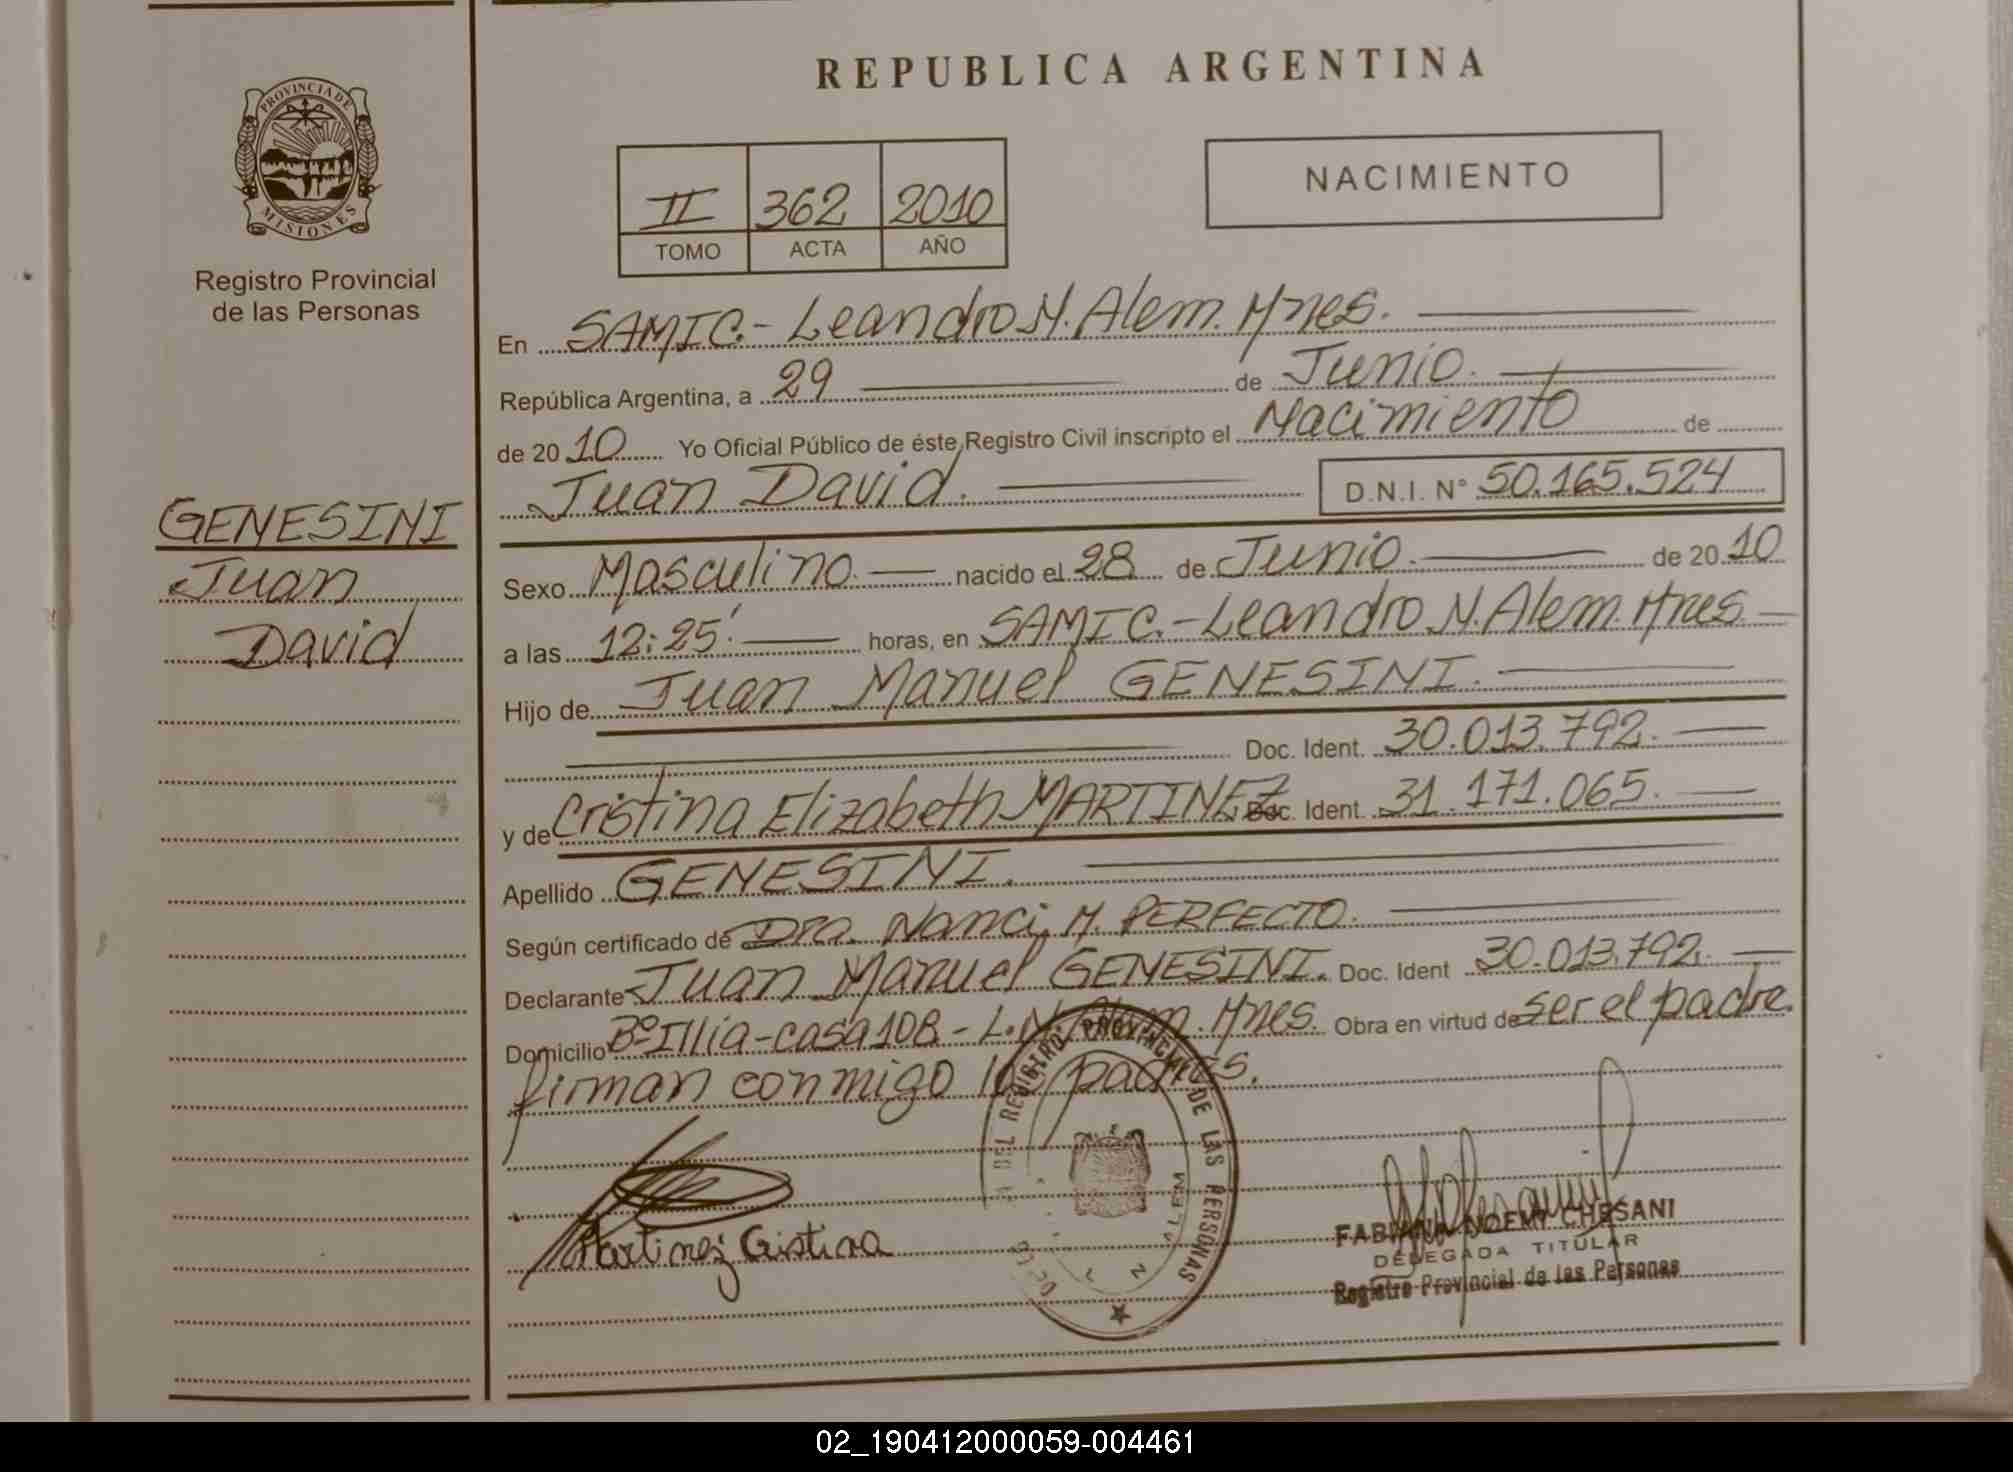 REPUBLICA ARGENTINA
PROVINCIA DE
MISIONES
Registro Provincial
de las Personas
GENESINI
Juan
David
II 362 2010
TOMO ACTA AÑO
NACIMIENTO
En SAMIC.- Leandro N. Alem. Mnes.
República Argentina, a 29 de Junio.
de 2010 Yo Oficial Público de éste Registro Civil inscripto el Nacimiento de
Juan David. D.N.I. N° 50.165.524
Sexo Masculino. nacido el 28 de Junio. de 2010
a las 12:25'. horas, en SAMIC.- Leandro N. Alem. Mnes
Hijo de Juan Manuel GENESINI.
Doc. Ident. 30.013.792.
y de Cristina Elizabeth MARTINEZ Doc. Ident. 31.171.065.
Apellido GENESINI.
Según certificado de Dra. Nanci, M. PERFECTO.
Declarante Juan Manuel GENESINI. Doc. Ident 30.013.792.
Domicilio B° Illia-casa 108 - L.N. Alem. Mnes. Obra en virtud de ser el padre.
firman conmigo los padres.
DEL REGISTRO PROVINCIAL DE LAS PERSONAS
L. N. ALEM
Martinez Cristina
FABIANA NOEMI CHESANI
DELEGADA TITULAR
Registro Provincial de las Personas
02_190412000059-004461